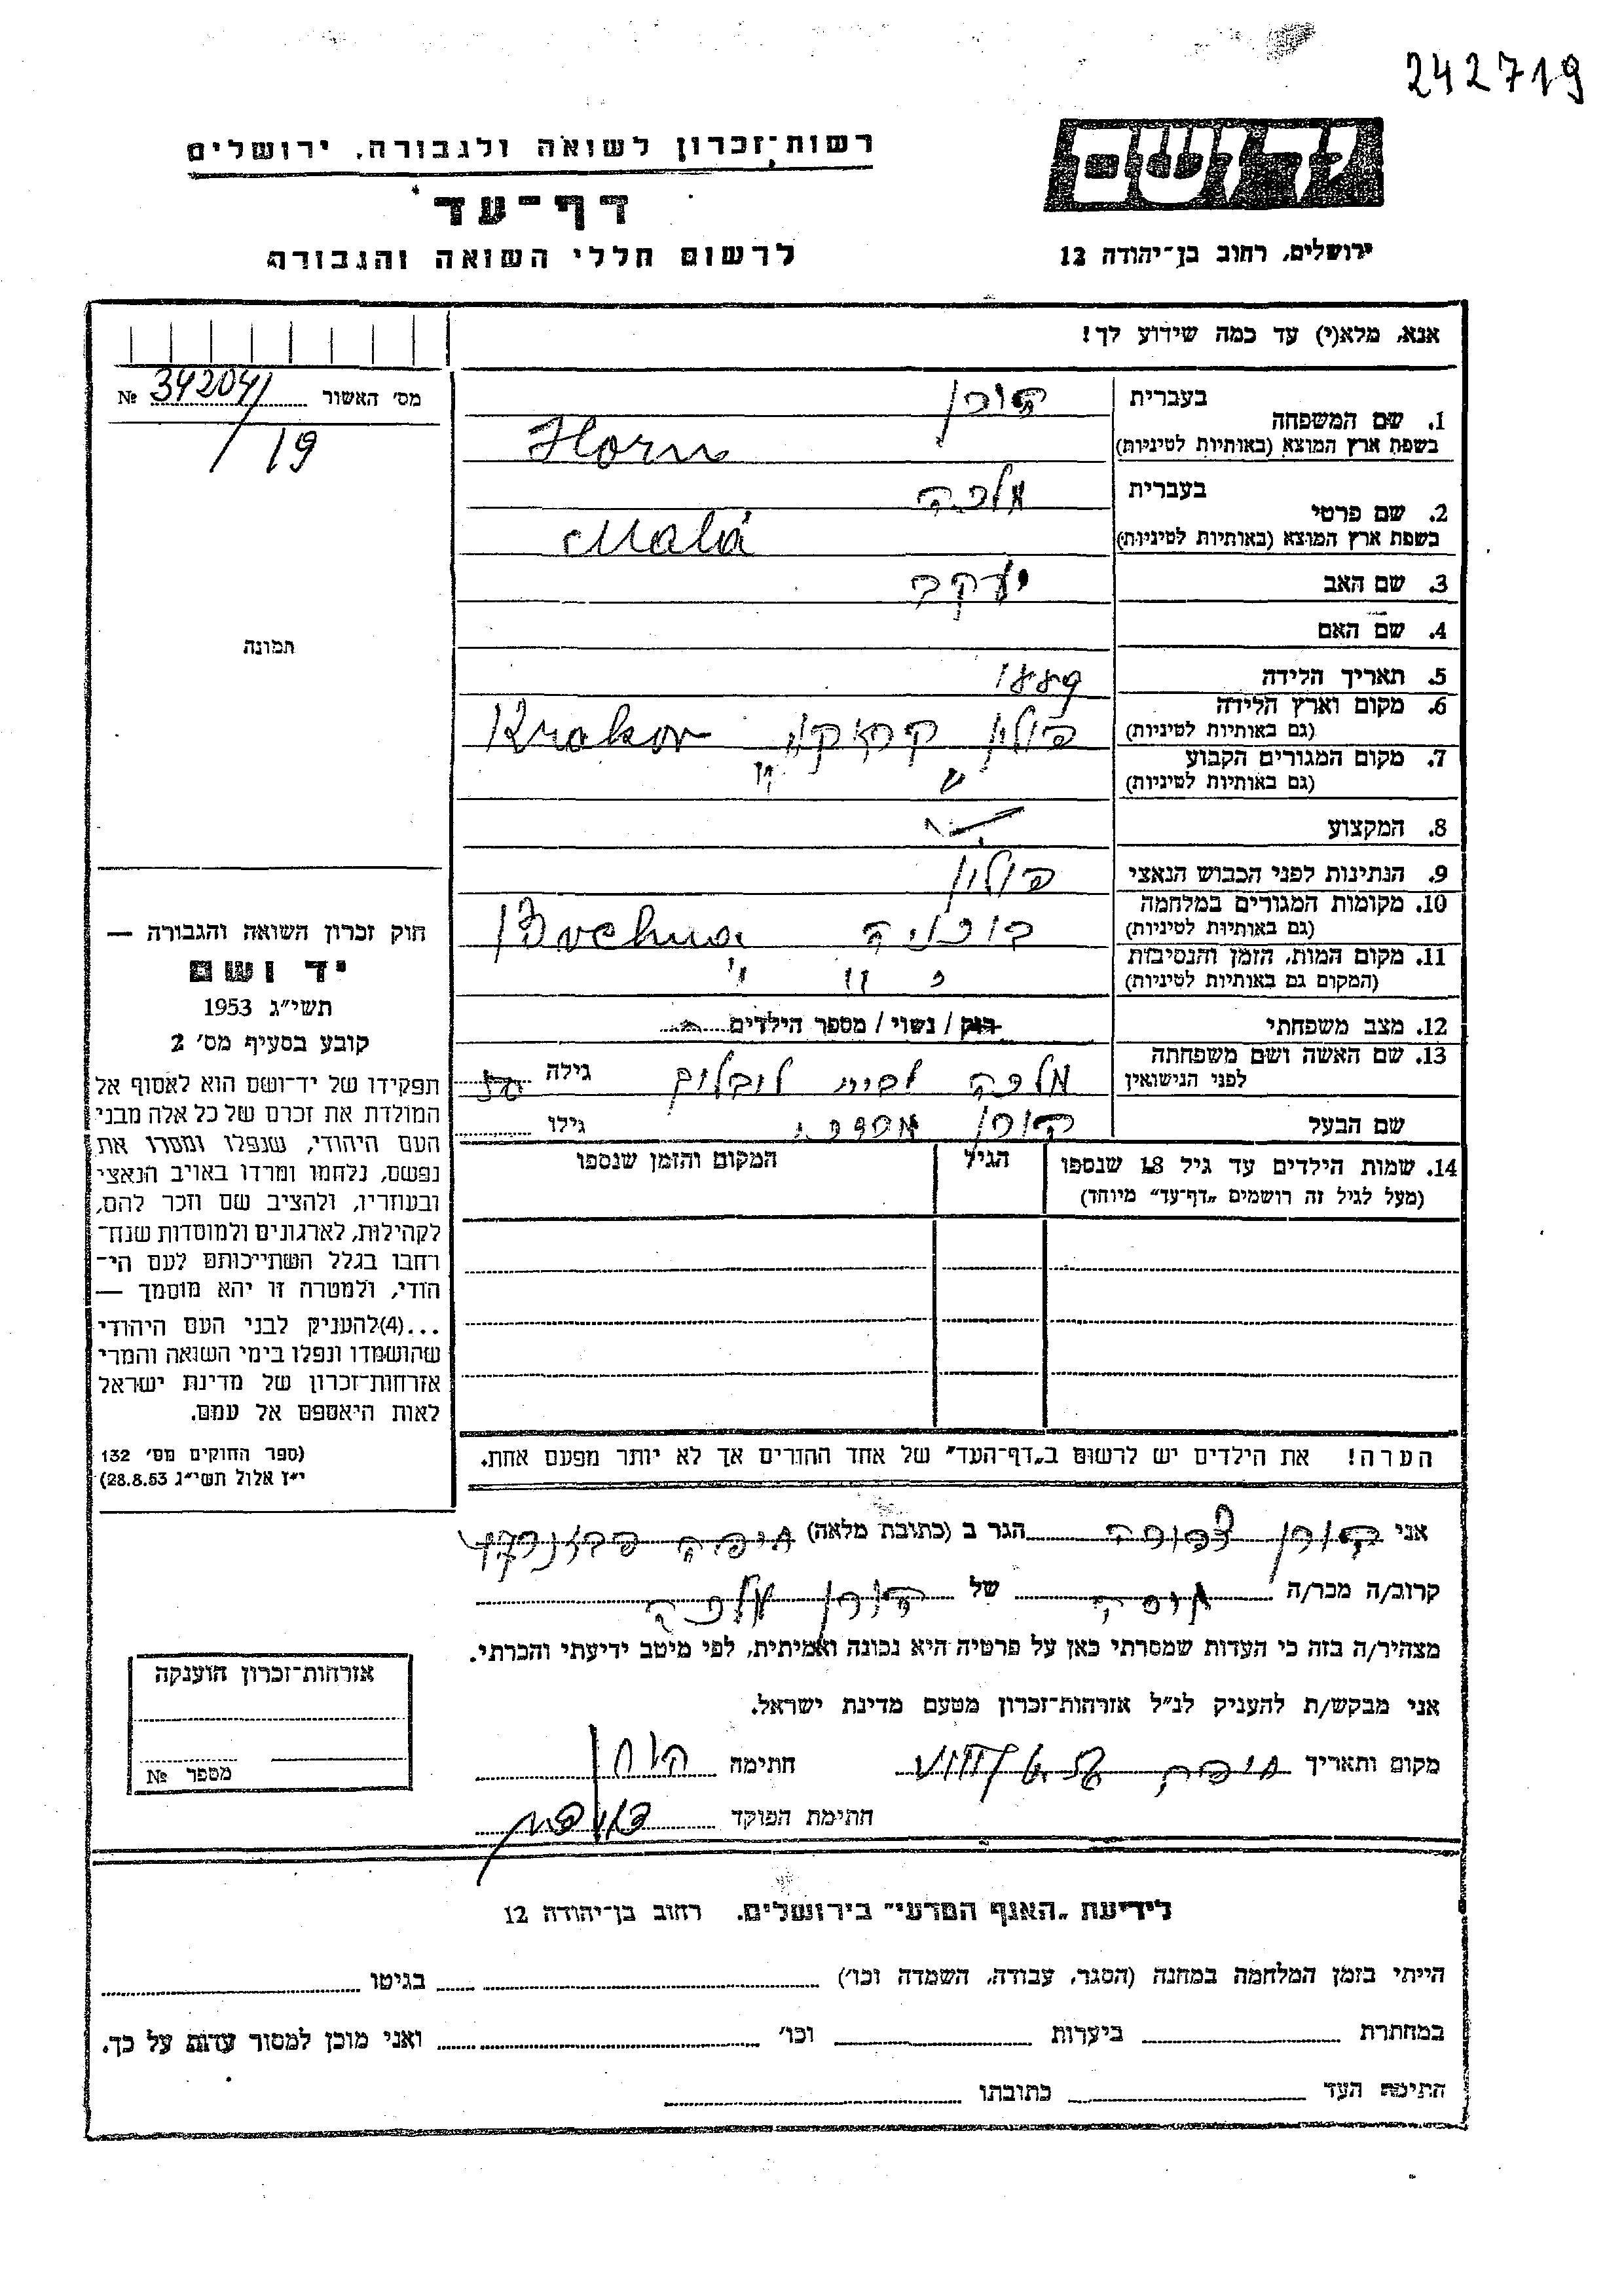 242719
יד ושם
רשות־זכרון לשואה ולגבורה, ירושלים
דף־עד
לרשום חללי השואה והגבורה
ירושלים, רחוב בן־יהודה 12
אנא, מלא(י) עד כמה שידוע לך!
מס׳ האשור № 342041
/19
תמונה
1. שם המשפחה
בעברית הורן
בשפת ארץ המוצא (באותיות לטיניות) Horn
2. שם פרטי
בעברית מלכה
בשפת ארץ המוצא (באותיות לטיניות) Mala
3. שם האב יעקב
4. שם האם
5. תאריך הלידה 1889
6. מקום וארץ הלידה
(גם באותיות לטיניות) פולין קראקוב Krakov
7. מקום המגורים הקבוע
(גם באותיות לטיניות)
8. המקצוע
9. הנתינות לפני הכבוש הנאצי פולין
10. מקומות המגורים במלחמה
(גם באותיות לטיניות) בוכניה Bochnia
11. מקום המות, הזמן והנסיבות
(המקום גם באותיות לטיניות)
12. מצב משפחתי רווק / נשוי / מספר הילדים
13. שם האשה ושם משפחתה
לפני הנישואין מלכה לבית גילה
שם הבעל הורן גילו
14. שמות הילדים עד גיל 18 שנספו
(מעל לגיל זה רושמים „דף־עד״ מיוחד)
הגיל
המקום והזמן שנספו
הערה! את הילדים יש לרשום ב„דף־העד״ של אחד ההורים אך לא יותר מפעם אחת.
חוק זכרון השואה והגבורה —
יד ושם
תשי״ג 1953
קובע בסעיף מס׳ 2
תפקידו של יד־ושם הוא לאסוף אל
המולדת את זכרם של כל אלה מבני
העם היהודי, שנפלו ומסרו את
נפשם, נלחמו ומרדו באויב הנאצי
ובעוזריו, ולהציב שם וזכר להם,
לקהילות, לארגונים ולמוסדות שנח־
רבו בגלל השתייכותם לעם הי־
הודי, ולמטרה זו יהא מוסמך —
...(4)להעניק לבני העם היהודי
שהושמדו ונפלו בימי השואה והמרי
אזרחות־זכרון של מדינת ישראל
לאות היאספם אל עמם.
(ספר החוקים מס׳ 132
י״ז אלול תשי״ג 28.8.53)
אני הורן צפורה הגר ב (כתובת מלאה) חיפה
קרוב/ה מכר/ה גיסה של הורן מלכה
מצהיר/ה בזה כי העדות שמסרתי כאן על פרטיה היא נכונה ואמיתית, לפי מיטב ידיעתי והכרתי.
אני מבקש/ת להעניק לנ״ל אזרחות־זכרון מטעם מדינת ישראל.
מקום ותאריך חיפה חתימה
חתימת הפוקד
אזרחות־זכרון הוענקה
מספר №
לידיעת „האגף המדעי״ בירושלים, רחוב בן־יהודה 12
הייתי בזמן המלחמה במחנה (הסגר, עבודה, השמדה וכו׳) בגיטו
במחתרת ביערות וכו׳ ואני מוכן למסור עדות על כך.
חתימת העד כתובתו